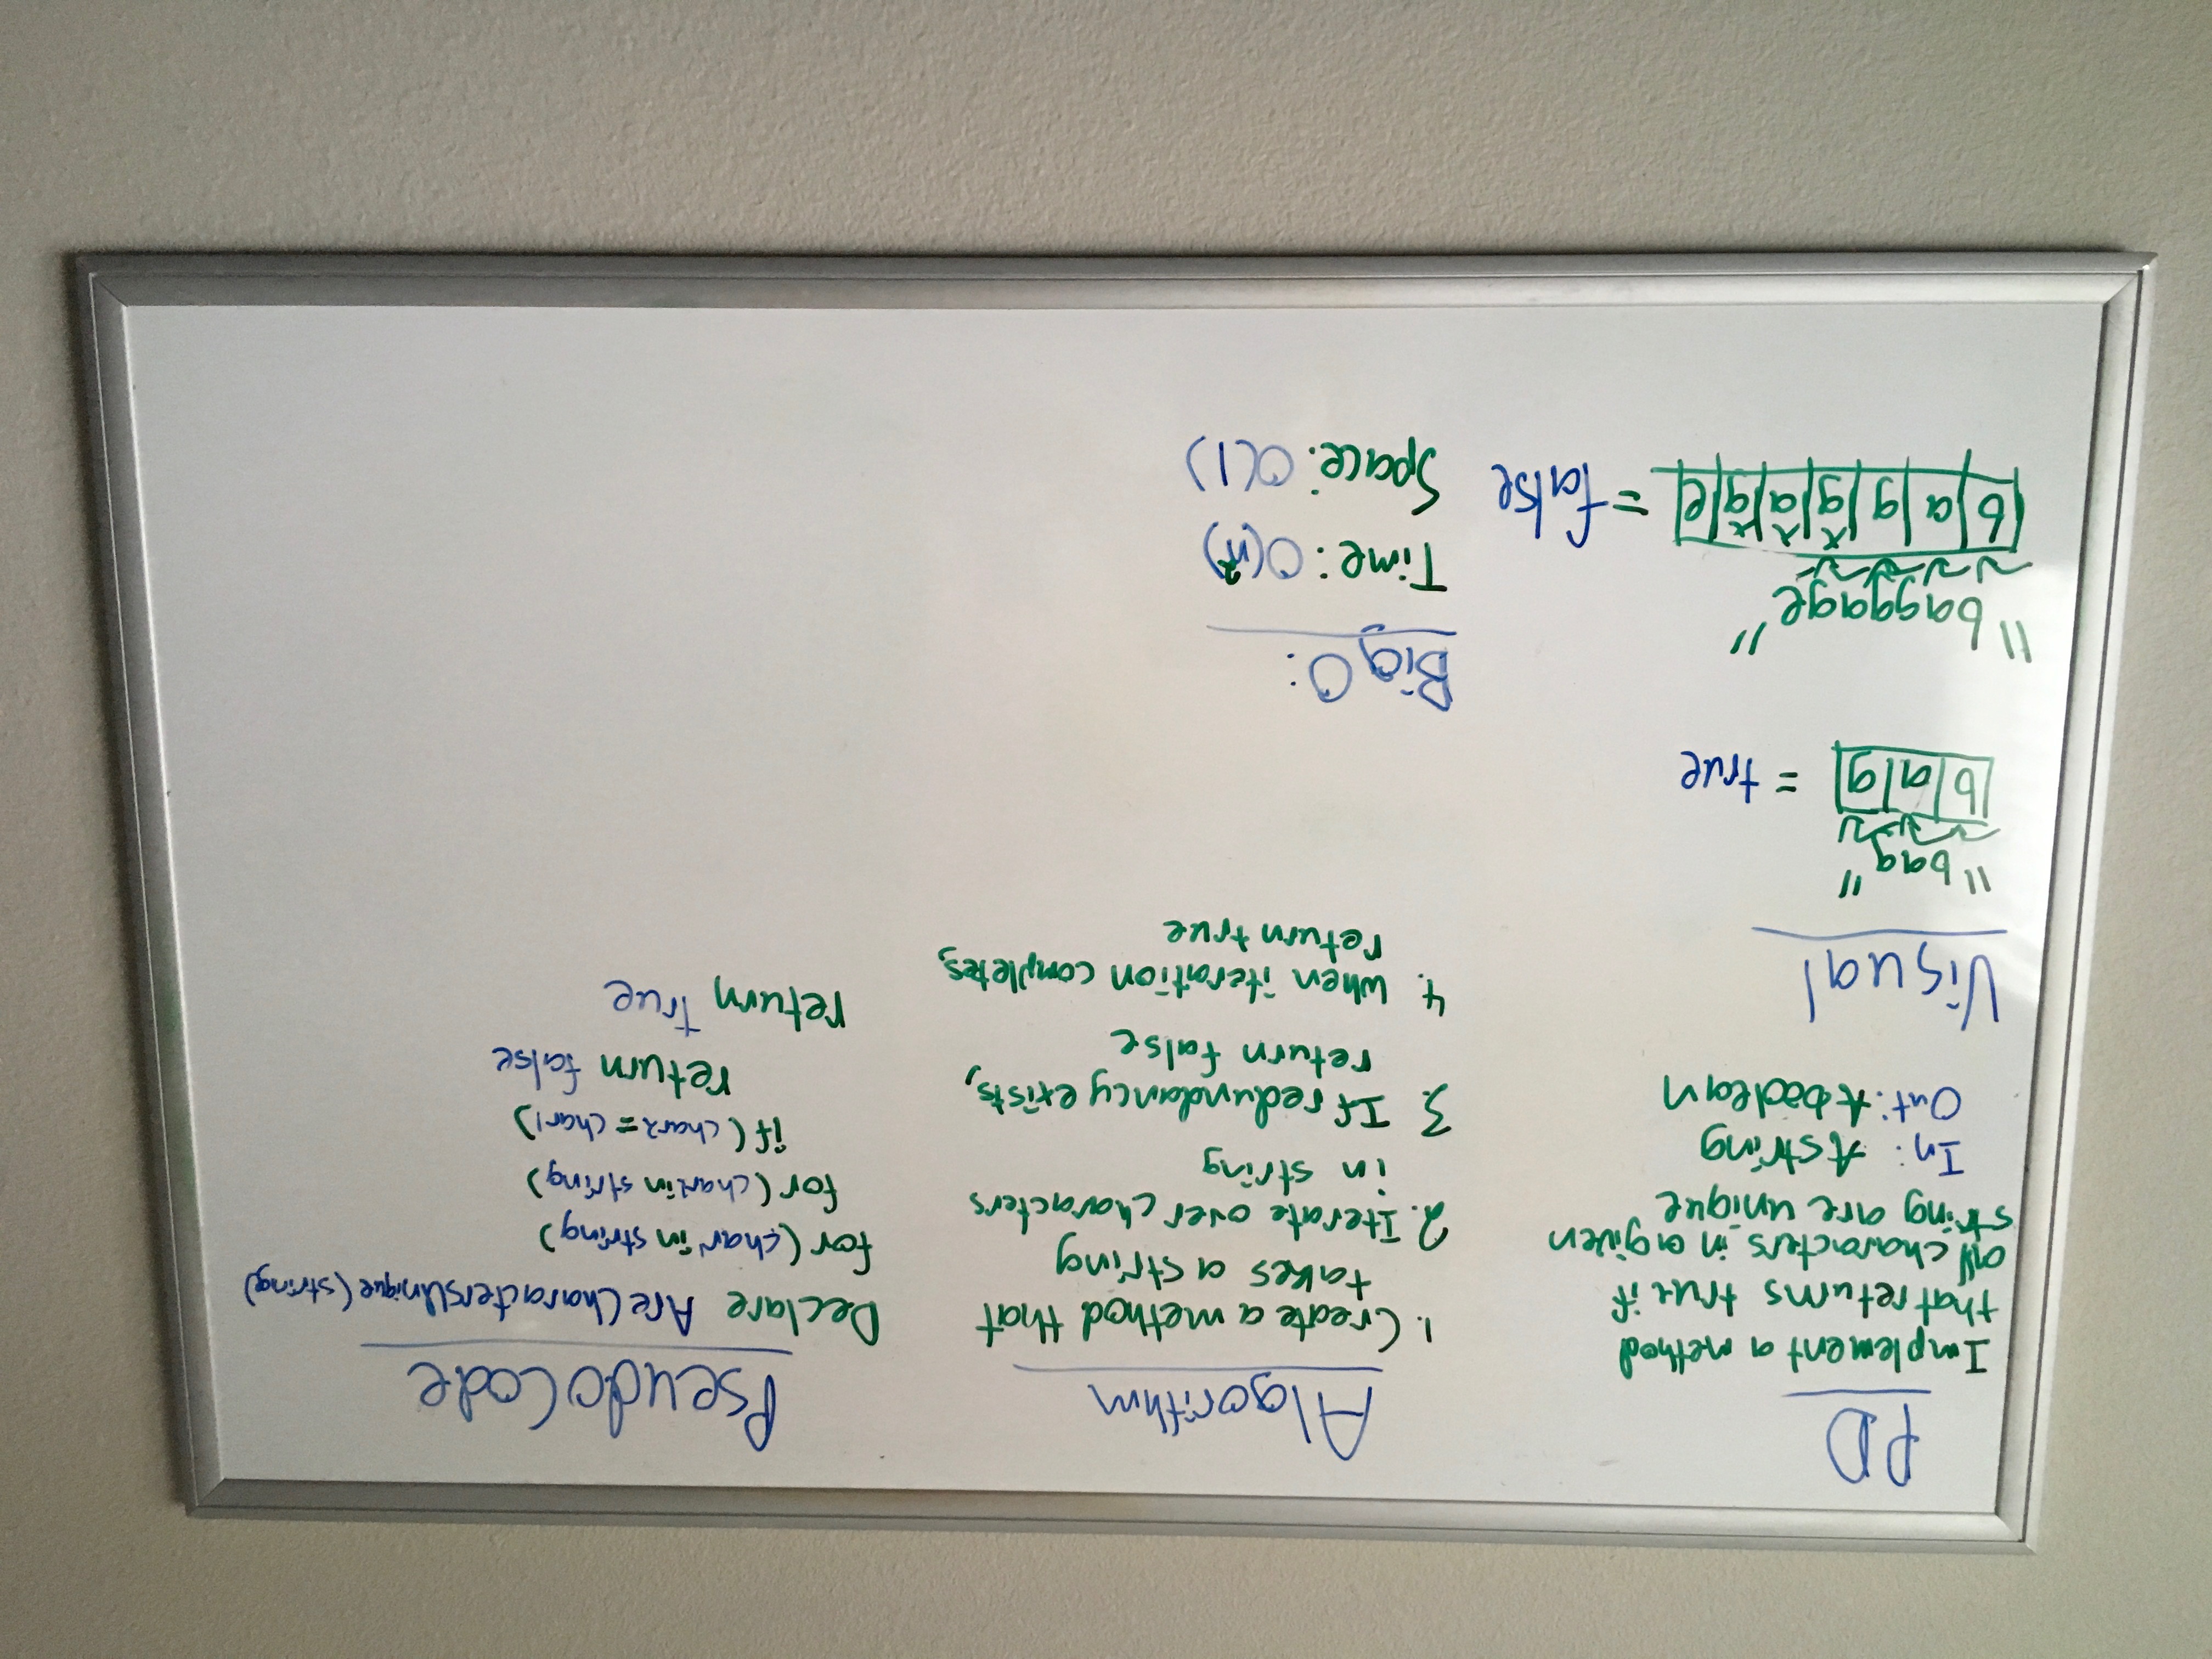 PD
Implement a method
that returns true if
all characters in a given
string are unique
In: A string
Out: A boolean
Visual
"bag"
b a g = true
"baggage"
b a g g a g e = false
Algorithm
1. Create a method that
takes a string
2. Iterate over characters
in string
3. If redundancy exists,
return false
4. When iteration completes,
return true
Big O:
Time: O(n²)
Space: O(1)
PseudoCode
Declare AreCharactersUnique(string)
for (char in string)
for (char2 in string)
if (char2 = char1)
return false
return True